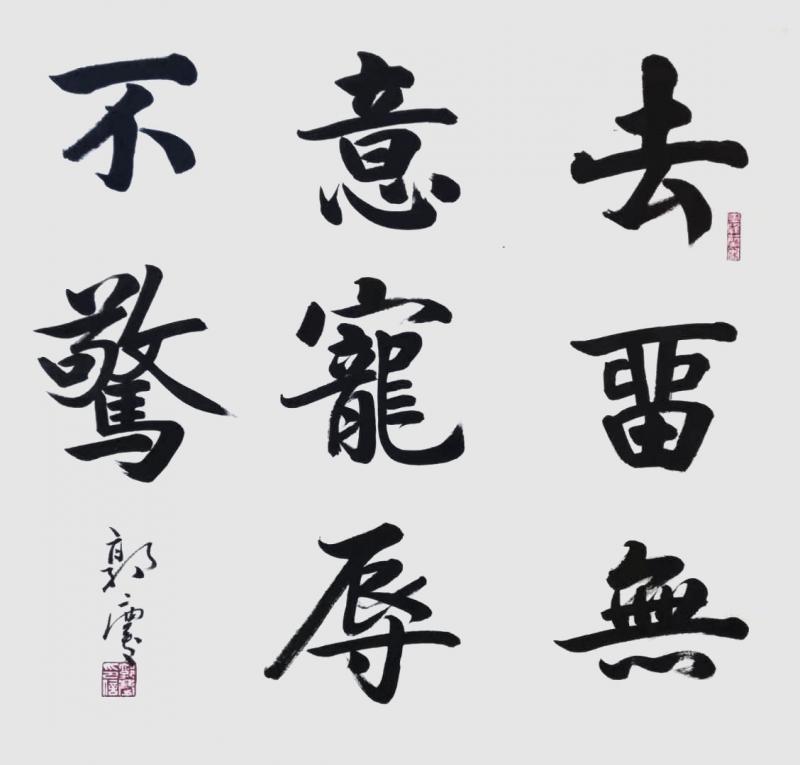 去畱無
意寵辱
不驚
郭